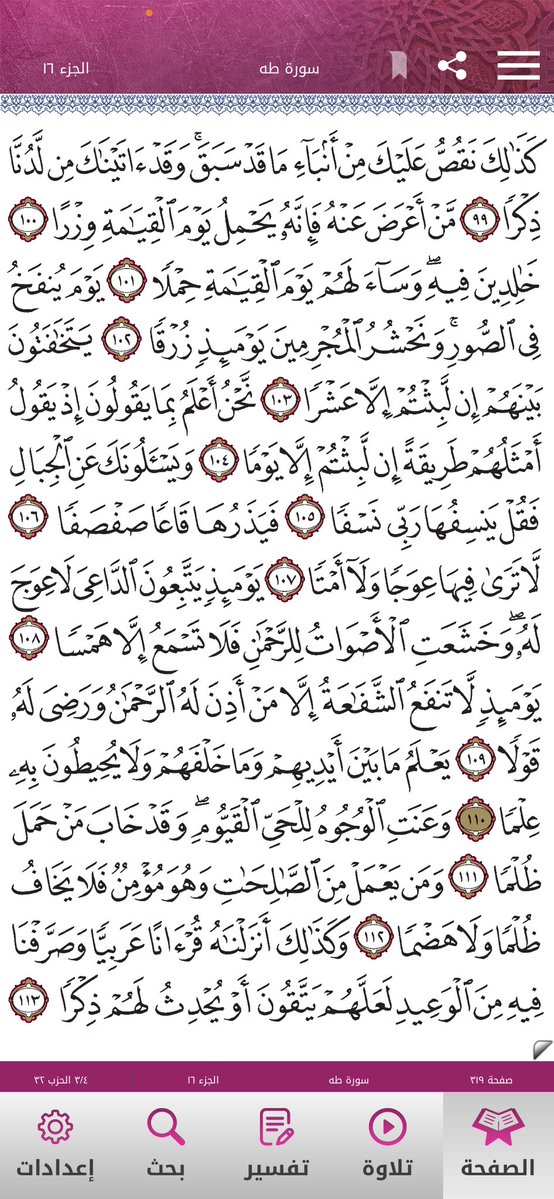 الجزء ١٦ سورة طه
كَذَٰلِكَ نَقُصُّ عَلَيْكَ مِنْ أَنۢبَآءِ مَا قَدْ سَبَقَ ۚ وَقَدْ ءَاتَيْنَٰكَ مِن لَّدُنَّا
ذِكْرًا ٩٩ مَّنْ أَعْرَضَ عَنْهُ فَإِنَّهُۥ يَحْمِلُ يَوْمَ ٱلْقِيَٰمَةِ وِزْرًا ١٠٠
خَٰلِدِينَ فِيهِ ۖ وَسَآءَ لَهُمْ يَوْمَ ٱلْقِيَٰمَةِ حِمْلًا ١٠١ يَوْمَ يُنفَخُ
فِى ٱلصُّورِ ۚ وَنَحْشُرُ ٱلْمُجْرِمِينَ يَوْمَئِذٍ زُرْقًا ١٠٢ يَتَخَٰفَتُونَ
بَيْنَهُمْ إِن لَّبِثْتُمْ إِلَّا عَشْرًا ١٠٣ نَّحْنُ أَعْلَمُ بِمَا يَقُولُونَ إِذْ يَقُولُ
أَمْثَلُهُمْ طَرِيقَةً إِن لَّبِثْتُمْ إِلَّا يَوْمًا ١٠٤ وَيَسْـَٔلُونَكَ عَنِ ٱلْجِبَالِ
فَقُلْ يَنسِفُهَا رَبِّى نَسْفًا ١٠٥ فَيَذَرُهَا قَاعًا صَفْصَفًا ١٠٦
لَّا تَرَىٰ فِيهَا عِوَجًا وَلَآ أَمْتًا ١٠٧ يَوْمَئِذٍ يَتَّبِعُونَ ٱلدَّاعِىَ لَا عِوَجَ
لَهُۥ ۖ وَخَشَعَتِ ٱلْأَصْوَاتُ لِلرَّحْمَٰنِ فَلَا تَسْمَعُ إِلَّا هَمْسًا ١٠٨
يَوْمَئِذٍ لَّا تَنفَعُ ٱلشَّفَٰعَةُ إِلَّا مَنْ أَذِنَ لَهُ ٱلرَّحْمَٰنُ وَرَضِىَ لَهُۥ
قَوْلًا ١٠٩ يَعْلَمُ مَا بَيْنَ أَيْدِيهِمْ وَمَا خَلْفَهُمْ وَلَا يُحِيطُونَ بِهِۦ
عِلْمًا ١١٠ وَعَنَتِ ٱلْوُجُوهُ لِلْحَىِّ ٱلْقَيُّومِ ۖ وَقَدْ خَابَ مَنْ حَمَلَ
ظُلْمًا ١١١ وَمَن يَعْمَلْ مِنَ ٱلصَّٰلِحَٰتِ وَهُوَ مُؤْمِنٌ فَلَا يَخَافُ
ظُلْمًا وَلَا هَضْمًا ١١٢ وَكَذَٰلِكَ أَنزَلْنَٰهُ قُرْءَانًا عَرَبِيًّا وَصَرَّفْنَا
فِيهِ مِنَ ٱلْوَعِيدِ لَعَلَّهُمْ يَتَّقُونَ أَوْ يُحْدِثُ لَهُمْ ذِكْرًا ١١٣
صفحة ٣١٩ سورة طه الجزء ١٦ ٣/٤ الحزب ٣٢
الصفحة تلاوة تفسير بحث إعدادات